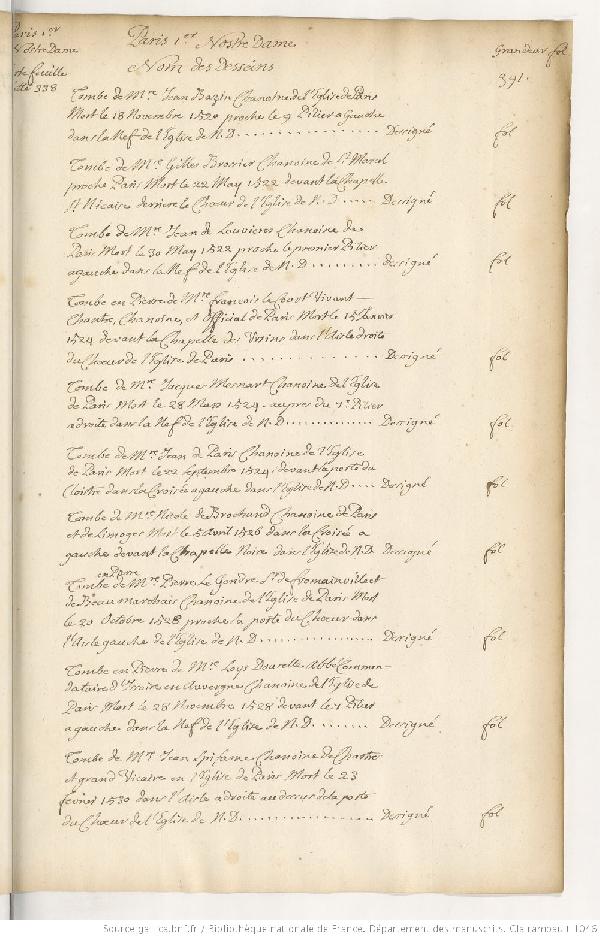 Paris 1er
Nostre Dame
338
Paris 1er Nostre Dame
Grandeur fol
Nom des Desseins
391.
Tombe de Mre Jean Bazin Chanoine de l'Eglise de Paris
Mort le 18 Novembre 1520 proche le 9 Pilier a Gauche
dans la Nef de l'Eglise de N.D. Dessigné fol
Tombe de Mre Gilles Brasier Chanoine de St Marcel
proche Paris Mort le 22 May 1522 devant la Chapelle
St Nicaise derriere le Chœur de l'Eglise de N.D. Dessigné fol
Tombe de Mre Jean de Louvieres Chanoine de
Paris Mort le 30 May 1522 proche le premier Pilier
a gauche dans la Nef de l'Eglise de N.D. dessigné fol
Tombe en Pierre de Mre francois le Court Vivant
Chantre, Chanoine, et Official de Paris Mort le 15 Janvier
1524 devant la Chapelle des Ursins dans l'Aisle droite
du Chœur de l'Eglise de Paris Designé fol
Tombe de Mre Jacques Mesnart Chanoine de l'Eglise
de Paris Mort le 28 Mars 1524. aupres du 1er Pilier
a droite dans la Nef de l'Eglise de N.D. Dessigné fol.
Tombe de Mre Jean de Paris Chanoine de l'Eglise
de Paris Mort le 22 septembre 1524. devant la porte du
Cloistre dans la Croisée a gauche dans l'Eglise de N.D. Designé fol
Tombe de Mre Nicole de Brochand Chanoine de Paris
et de Limoges Mort le 5 Avril 1526 dans la Croisée a
gauche devant la Chapelle Noire dans l'Eglise de N.D. Dessigné fol
Tombe de Mre Pierre Le Gendre Sr de Romainville et
de Beau Marchais Chanoine de l'Eglise de Paris Mort
le 20 Octobre 1528 proche la porte du Chœur dans
l'Aisle gauche de l'Eglise de N.D. Designé fol
Tombe en Pierre de Mre Loys Abbé Commen-
dataire d'Issoire en Auvergne Chanoine de l'Eglise de
Paris Mort le 28 Novembre 1528 devant le 1 Pilier
a gauche dans la Nef de l'Eglise de N.D. Dessigné fol
Tombe de Mre Jean Spifame Chanoine de Chartre
et grand Vicaire en l'Eglise de Paris Mort le 23
fevrier 1530 dans l'Aisle a droite au dessus de la porte
du Chœur de l'Eglise de N.D. Designé fol
Source gallica.bnf.fr / Bibliothèque nationale de France. Département des manuscrits. Clairambault 1046